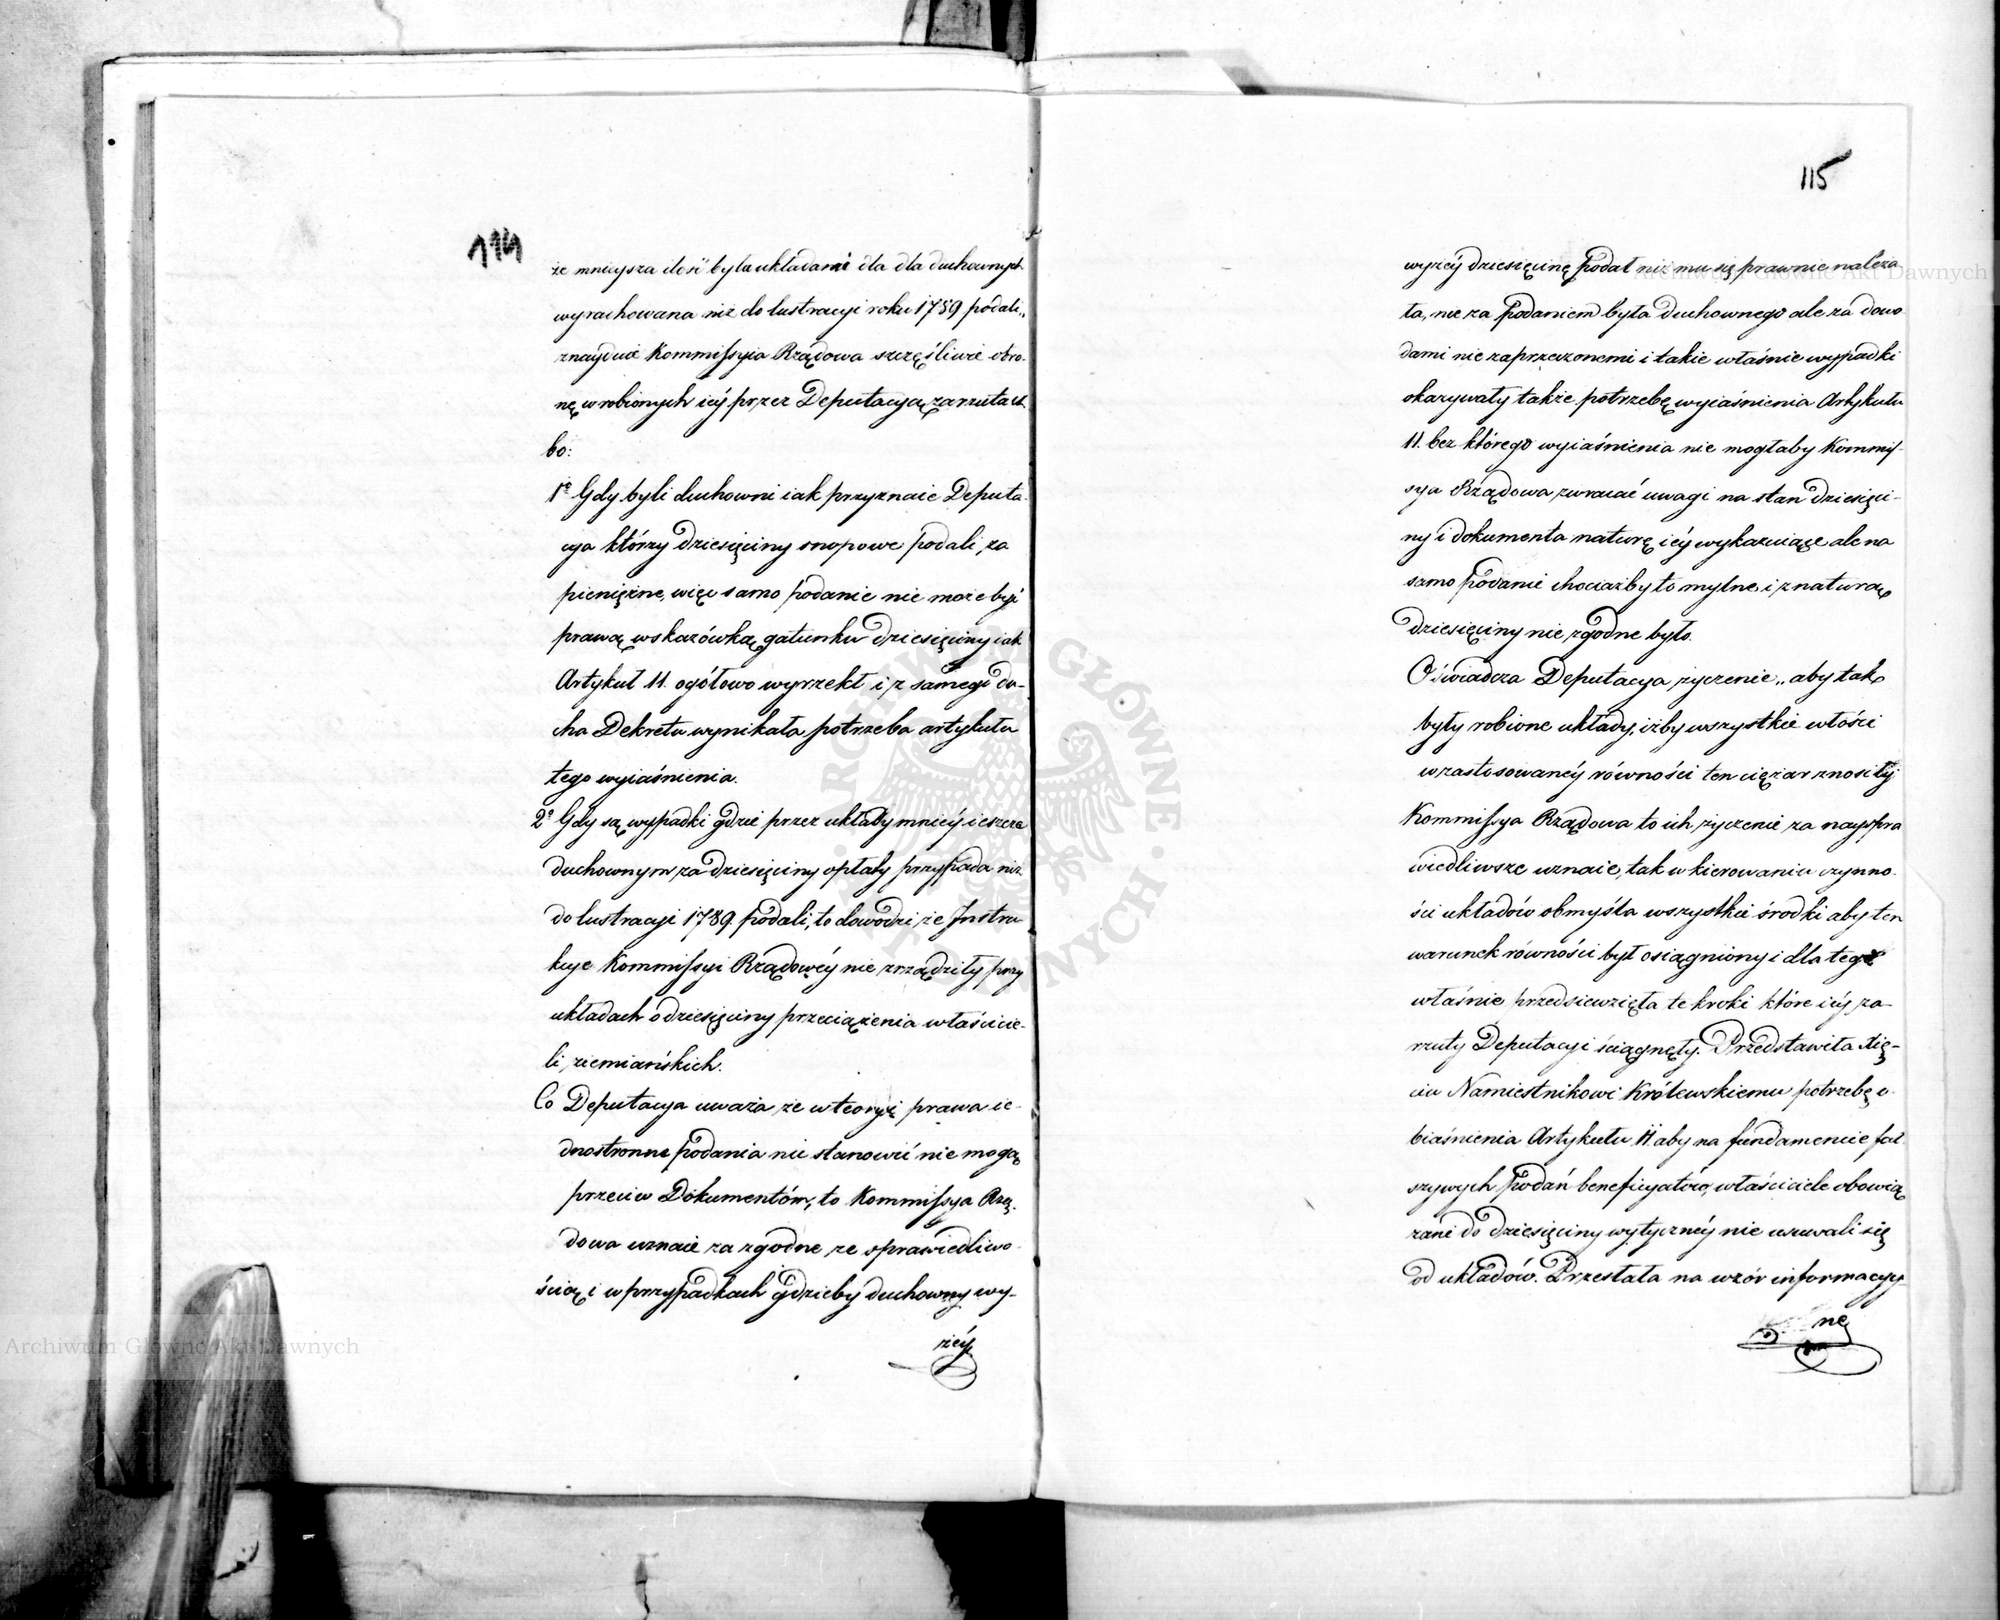 114
że mnieysza ilość była układami dla dla duchownych
wyrachowana niż do lustracyi roku 1789 podali„
znayduie Kommissyia Rządowa szczęśliwie obro-
nę w robionych iéy przez Deputacyą zarzutach
bo:
1º Gdy byli duchowni iak przyznaie Deputa-
cya którzy dziesięciny snopowe podali, za
pieniężne, więc samo podanie nie może być
prawą wskazówką gatunku dziesięciny iak
Artykuł 11. ogółowo wyrzekł i z samego du-
cha Dekretu wynikała potrzeba artykułu
tego wyiaśnienia.
2º Gdy są wypadki gdzie przez układy mniéy ieszcze
duchownym za dziesięciny opłaty przypada niż
do lustracyi 1789 podali, to dowodzi, że Instru-
kcye Kommissyi Rządowéy nie zrządziły przy
układach o dziesięciny przeciążenia właścicie-
li ziemiańskich.
Co Deputacya uważa że w teoryi prawa ie-
dnostronne podania nic stanowić nie mogą
przeciw Dokumentóm, to Kommissya Rzą-
dowa uznaie za zgodne ze sprawiedliwo-
ścią i w przypadkach gdzieby duchowny wy-
żéy
115
wyżéy dziesięcinę podał niż mu się prawnie należa-
ła, nie za podaniem była duchownego ale za dowo-
dami nie zaprzeczonemi i takie właśnie wypadki
okazywały także potrzebę wyiaśnienia Artykułu
11. bez którego wyiaśnienia nie mogłaby Kommis-
sya Rządowa zwracać uwagi na stan dziesięci-
ny i dokumenta naturę iéy wykazuiące ale na
samo podanie chociażby to mylne i z naturą
dziesięciny nie zgodne było.
Oświadcza Deputacya życzenie „aby tak
były robione układy, iżby wszystkie włości
w zastosowanéy równości ten ciężar znosiły
Kommissya Rządowa to ich życzenie za nayspra-
wiedliwsze uznaie, tak w kierowaniu czynno-
ści układów obmyśla wszystkie środki aby ten
warunek równości był osiągniony i dla tego
właśnie przedsięwzięła te kroki które iéy za-
rzuty Deputacyi ściągnęły. Przedstawiła Xię-
ciu Namiestnikowi Królewskiemu potrzebę o-
biaśnienia Artykułu 11. aby na fundamencie fał-
szywych podań beneficyatów, właściciele obowią-
zani do dziesięciny wytycznéy nie usuwali się
od układów. Przesłała na wzór informacyy-
ne